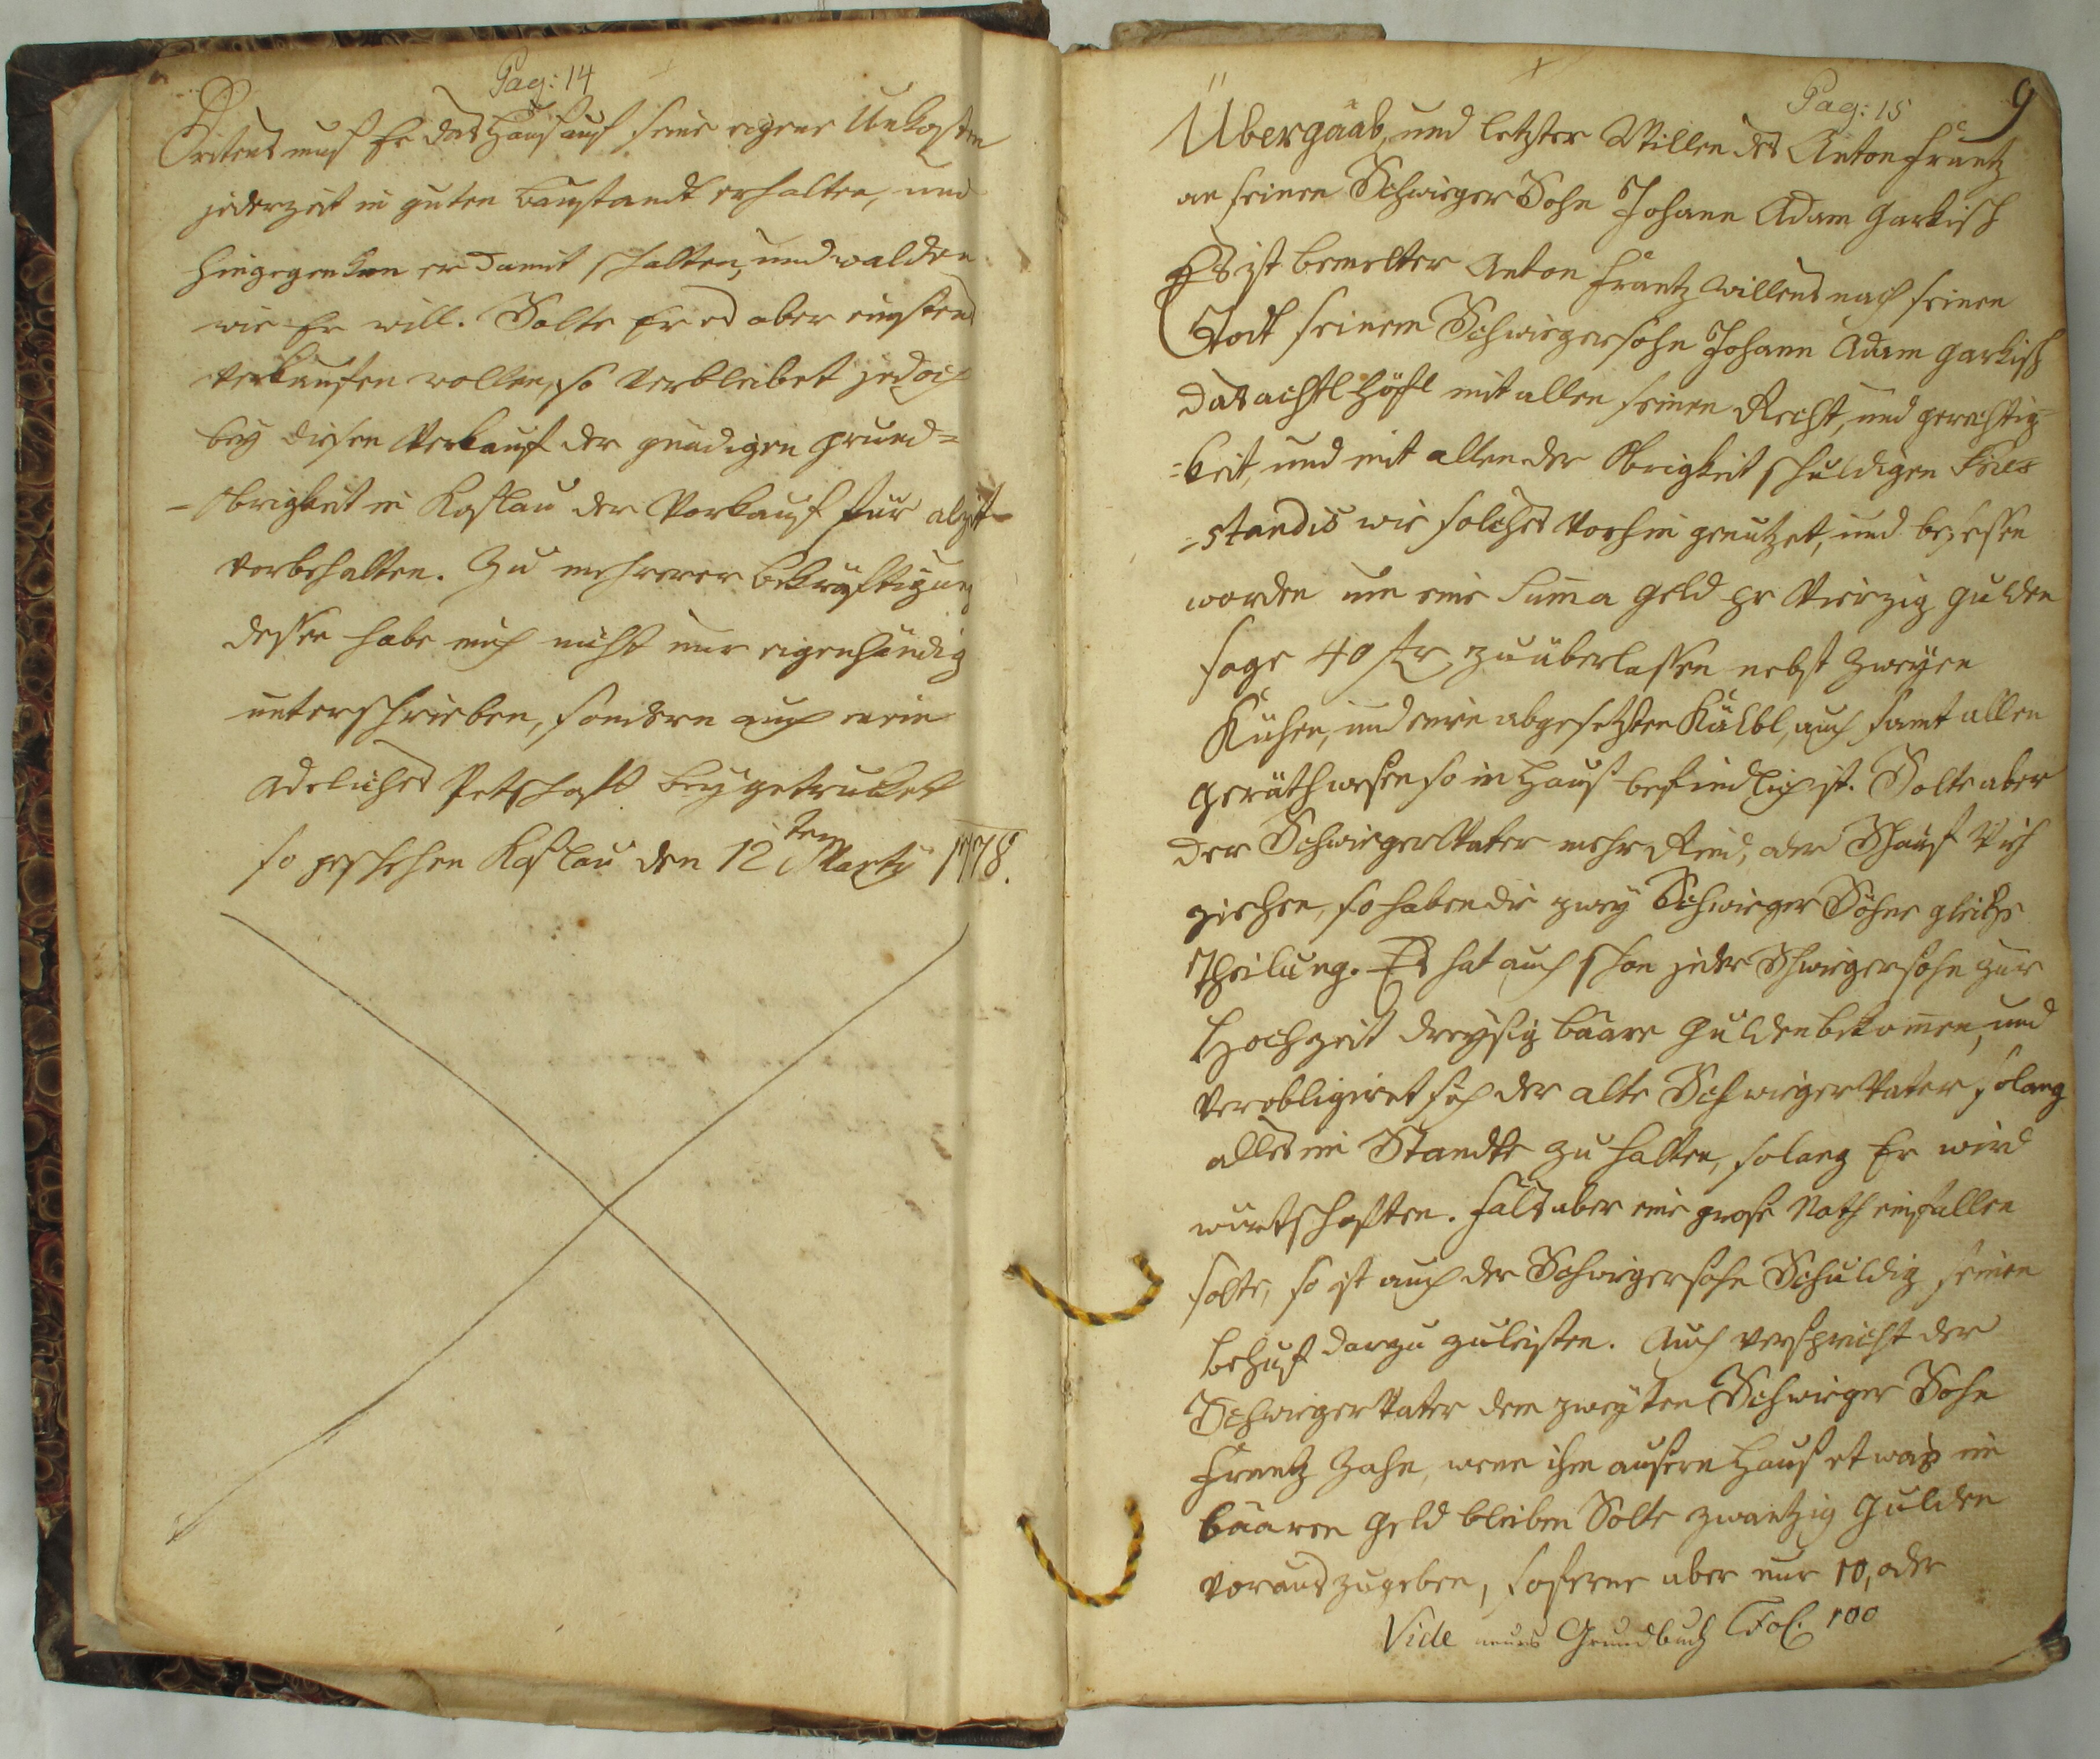 Pag: 14
Dritens mus Er das Haus auf seine eigene Unkosten
jederzeit in guten baustandt erhalten, und
hingegen kan er damit schalten, und walden
wie Er will. Solte Er es aber einstens
verkaufen wollen, so verbleibet jedoch
bey diesen Verkauf der gnädigen Grund=
=Obrigkeit in Kostlau der Vorkauf für alzeit
vorbehalten. Zu mehrerer bekräftigung
dessen habe mich nicht nur eigenhändig
unterschrieben, sondern auch mein
adeliches Petschaft beygetrucket
so geschehen Kostlau den 12ten Marty 1778.
Pag: 15
9
Übergaab, und letzter Willen des Anton Frantz
an seinen Schwieger Sohn Johann Adam Garkisch
Es ist bemelter Anton Frantz willens nach seinen
Todt seinem Schwiegersohn Johann Adam Garkisch
das achtl Höfl mit allen seinen Recht, und gerechtig=
=keit, und mit allen der Obrigkeit schuldigen
=standis wie solches vorhin genutzet, und besessen
worden um eine Suma Geld pr Vierzig gulden
sage 40 fr, zu überlassen nebst zweyen
Kühen, und ein abgesetzten Kälbl, auch samt allen
geräthwesen so in Haus befindlich ist. Solte aber
der Schwieger Vater mehr Rind, oder Schaaf Vieh
ziehen, so haben die zwey Schwieger Söhne gleiche
Theilung. Es hat auch schon jeder Schwiegersohn zur
Hochzeit dreysig baare Gulden bekomen, und
verobligiret sich der alte Schwieger Vater solang
alles im Standte zu halten, solang Er wird
wirtschaften. Fals aber eine grose Noth einfallen
solte, so ist auch der Schwiegersohn Schuldig seinen
behuf darzu zuleisten. Auch verspricht der
Schwieger Vater dem zweyten Schwieger Sohn
Frantz Zahn, wenn ihm ausern Haus etwas im
baaren Geld bleiben Solte zwantzig Gulden
voraus zugeben, soferne aber nur 10, oder
Vide neues Grundbuch Fol. 100